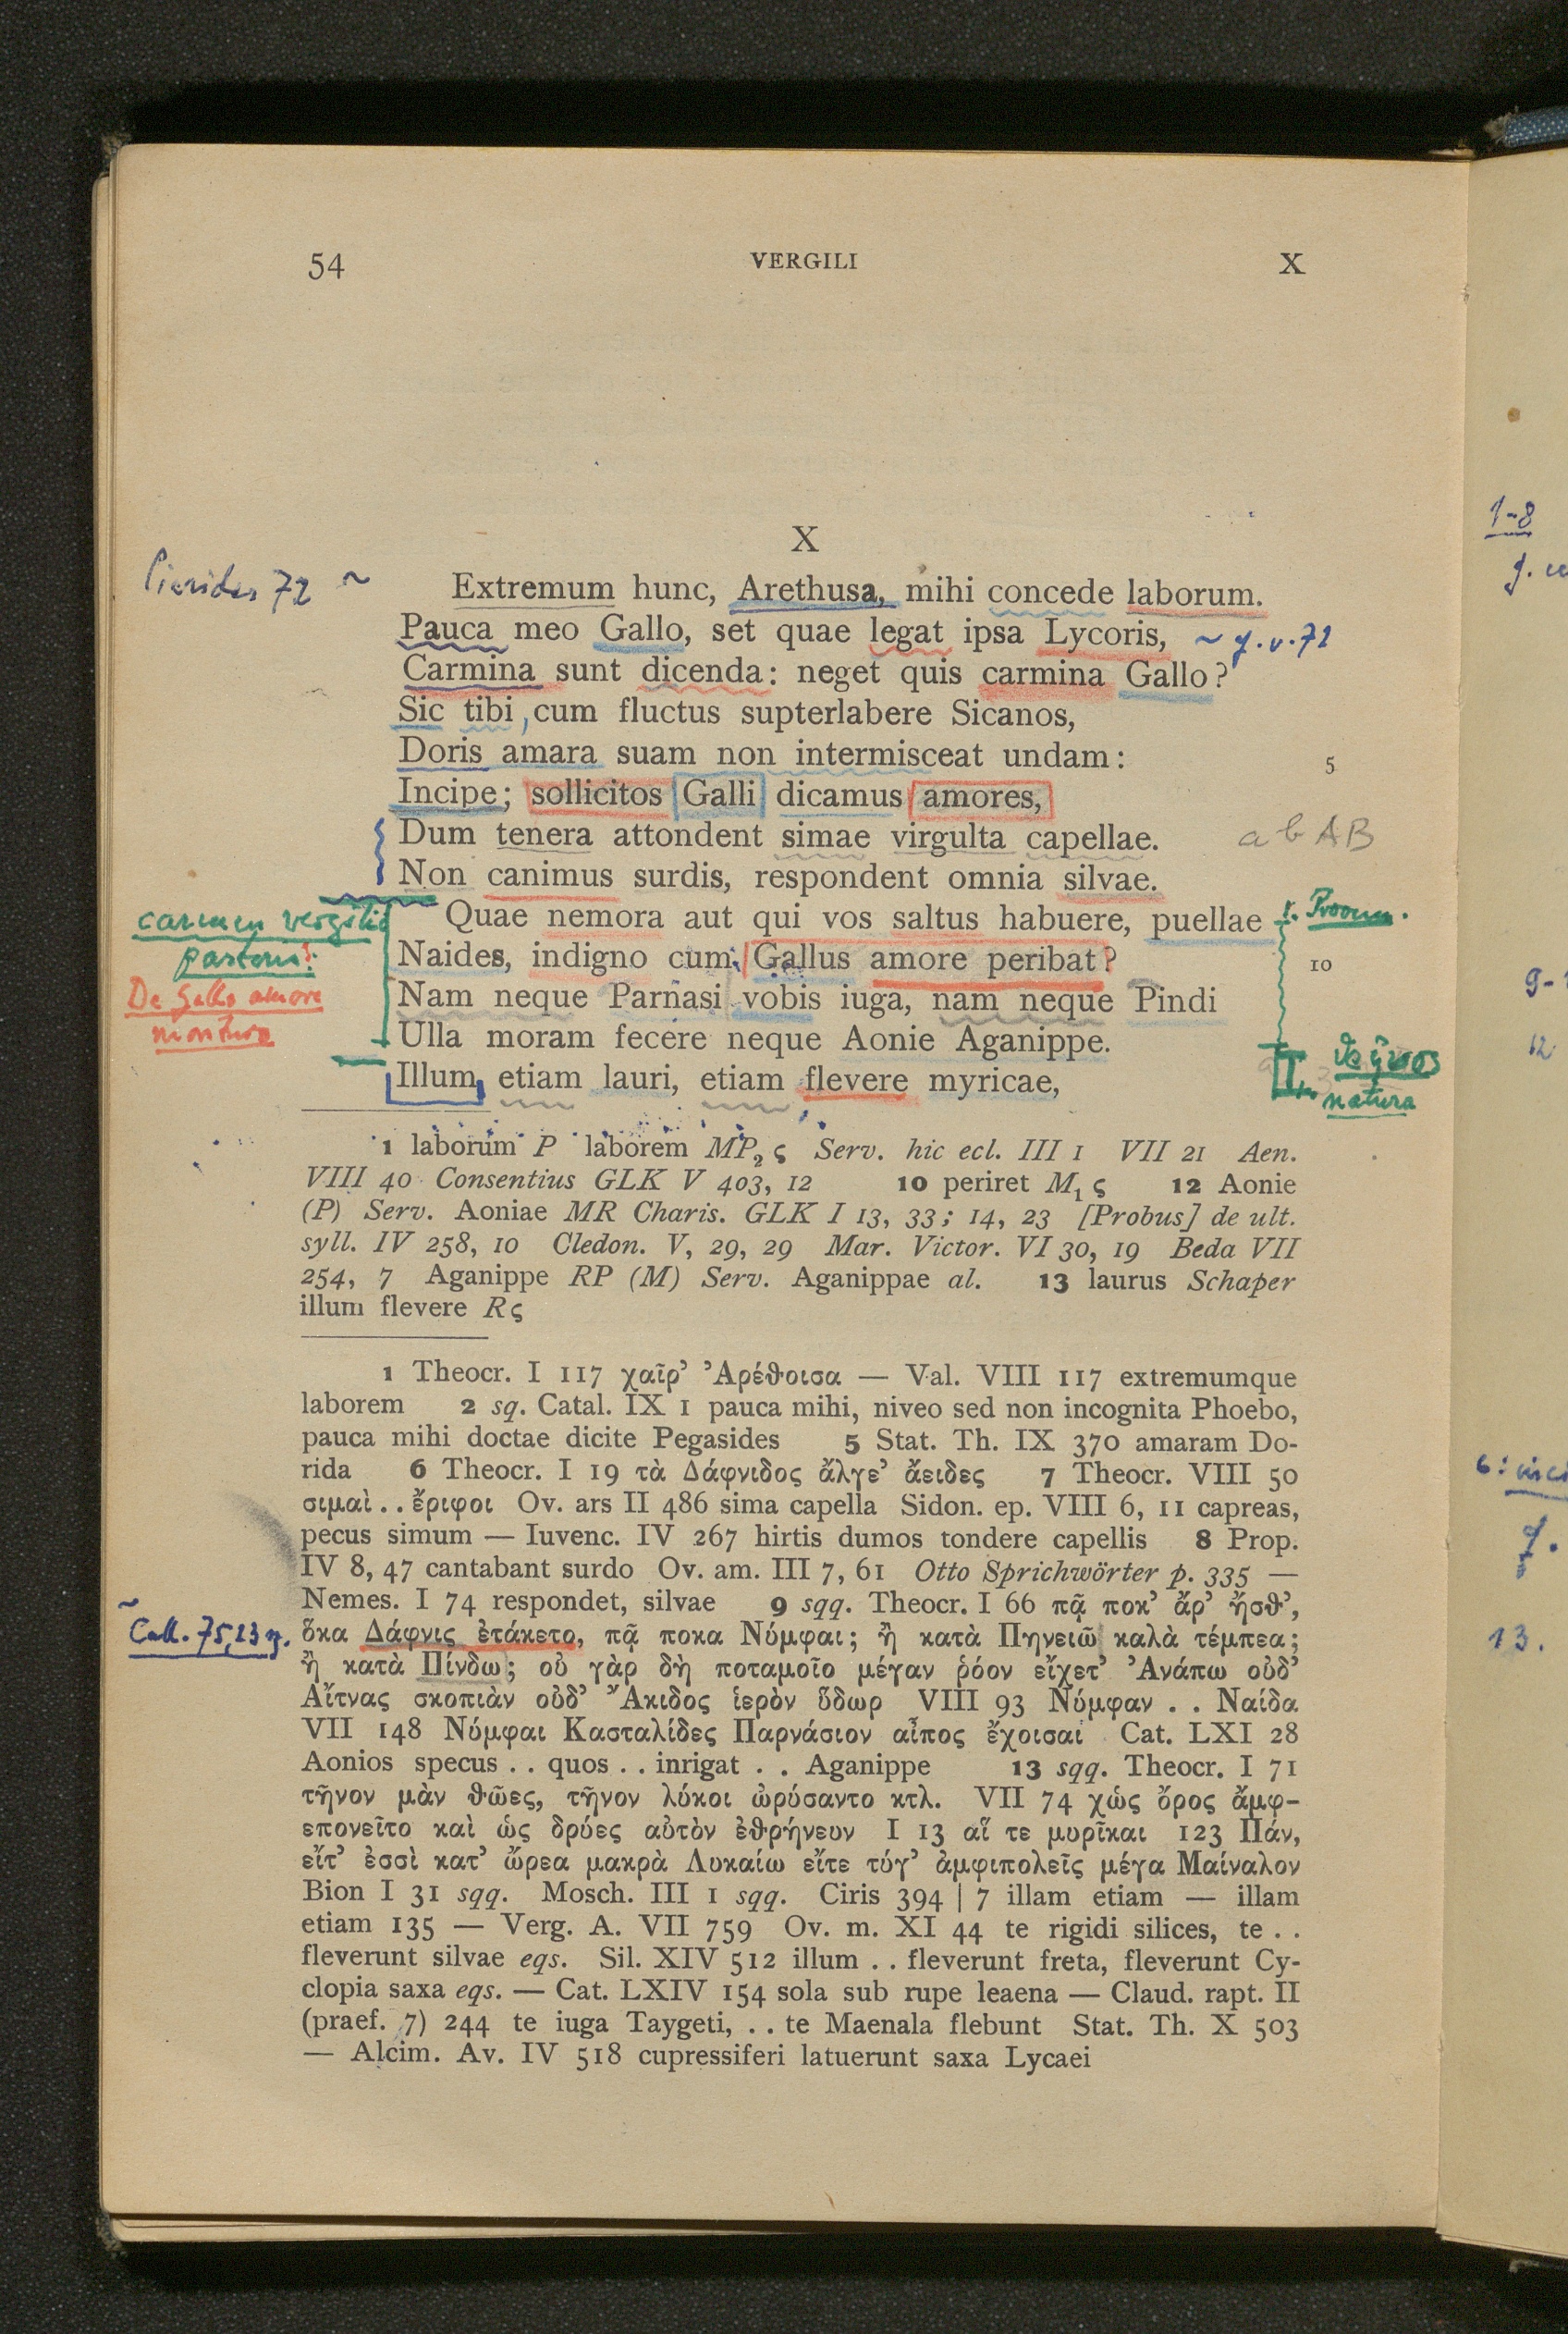 54 VERGILI X
X
Pierides 72 ~
Extremum hunc, Arethusa, mihi concede laborum.
Pauca meo Gallo, set quae legat ipsa Lycoris,
~ v. 72
Carmina sunt dicenda: neget quis carmina Gallo?
Sic tibi, cum fluctus supterlabere Sicanos,
Doris amara suam non intermisceat undam:
5
Incipe; sollicitos Galli dicamus amores,
Dum tenera attondent simae virgulta capellae.
a b A B
Non canimus surdis, respondent omnia silvae.
Quae nemora aut qui vos saltus habuere, puellae
I. Prooem.
carmen vergilii
pastoris:
Naides, indigno cum Gallus amore peribat?
10
De Gallo amore
morituro
Nam neque Parnasi vobis iuga, nam neque Pindi
Ulla moram fecere neque Aonie Aganippe.
II.
natura
Illum etiam lauri, etiam flevere myricae,
1 laborum P laborem MP₂ ς Serv. hic ecl. III 1 VII 21 Aen.
VIII 40 Consentius GLK V 403, 12 10 periret M₁ ς 12 Aonie
(P) Serv. Aoniae MR Charis. GLK I 13, 33; 14, 23 [Probus] de ult.
syll. IV 258, 10 Cledon. V, 29, 29 Mar. Victor. VI 30, 19 Beda VII
254, 7 Aganippe RP (M) Serv. Aganippae al. 13 laurus Schaper
illum flevere Rς
1 Theocr. I 117 χαῖρ’ Ἀρέθοισα — Val. VIII 117 extremumque
laborem 2 sq. Catal. IX 1 pauca mihi, niveo sed non incognita Phoebo,
pauca mihi doctae dicite Pegasides 5 Stat. Th. IX 370 amaram Do-
rida 6 Theocr. I 19 τὰ Δάφνιδος ἄλγε’ ἄειδες 7 Theocr. VIII 50
σιμαὶ . . ἔριφοι Ov. ars II 486 sima capella Sidon. ep. VIII 6, 11 capreas,
pecus simum — Iuvenc. IV 267 hirtis dumos tondere capellis 8 Prop.
IV 8, 47 cantabant surdo Ov. am. III 7, 61 Otto Sprichwörter p. 335 —
Nemes. I 74 respondet, silvae 9 sqq. Theocr. I 66 πᾷ ποκ’ ἄρ’ ἦσθ’,
~ Call. 75, 23
ὅκα Δάφνις ἐτάκετο, πᾷ ποκα Νύμφαι; ἢ κατὰ Πηνειῶ καλὰ τέμπεα;
ἢ κατὰ Πίνδω; οὐ γὰρ δὴ ποταμοῖο μέγαν ῥόον εἴχετ’ Ἀνάπω οὐδ’
Αἴτνας σκοπιὰν οὐδ’ Ἄκιδος ἱερὸν ὕδωρ VIII 93 Νύμφαν . . Ναίδα
VII 148 Νύμφαι Κασταλίδες Παρνάσιον αἶπος ἔχοισαι Cat. LXI 28
Aonios specus . . quos . . inrigat . . Aganippe 13 sqq. Theocr. I 71
τῆνον μὰν θῶες, τῆνον λύκοι ὠρύσαντο κτλ. VII 74 χὡς ὄρος ἄμφ-
επονεῖτο καὶ ὡς δρύες αὐτὸν ἐθρήνευν I 13 αἵ τε μυρῖκαι 123 Πάν,
εἴτ’ ἐσσὶ κατ’ ὤρεα μακρὰ Λυκαίω εἴτε τύγ’ ἀμφιπολεῖς μέγα Μαίναλον
Bion I 31 sqq. Mosch. III 1 sqq. Ciris 394 | 7 illam etiam — illam
etiam 135 — Verg. A. VII 759 Ov. m. XI 44 te rigidi silices, te . .
fleverunt silvae eqs. Sil. XIV 512 illum . . fleverunt freta, fleverunt Cy-
clopia saxa eqs. — Cat. LXIV 154 sola sub rupe leaena — Claud. rapt. II
(praef. 7) 244 te iuga Taygeti, . . te Maenala flebunt Stat. Th. X 503
— Alcim. Av. IV 518 cupressiferi latuerunt saxa Lycaei
1-8
12
13.